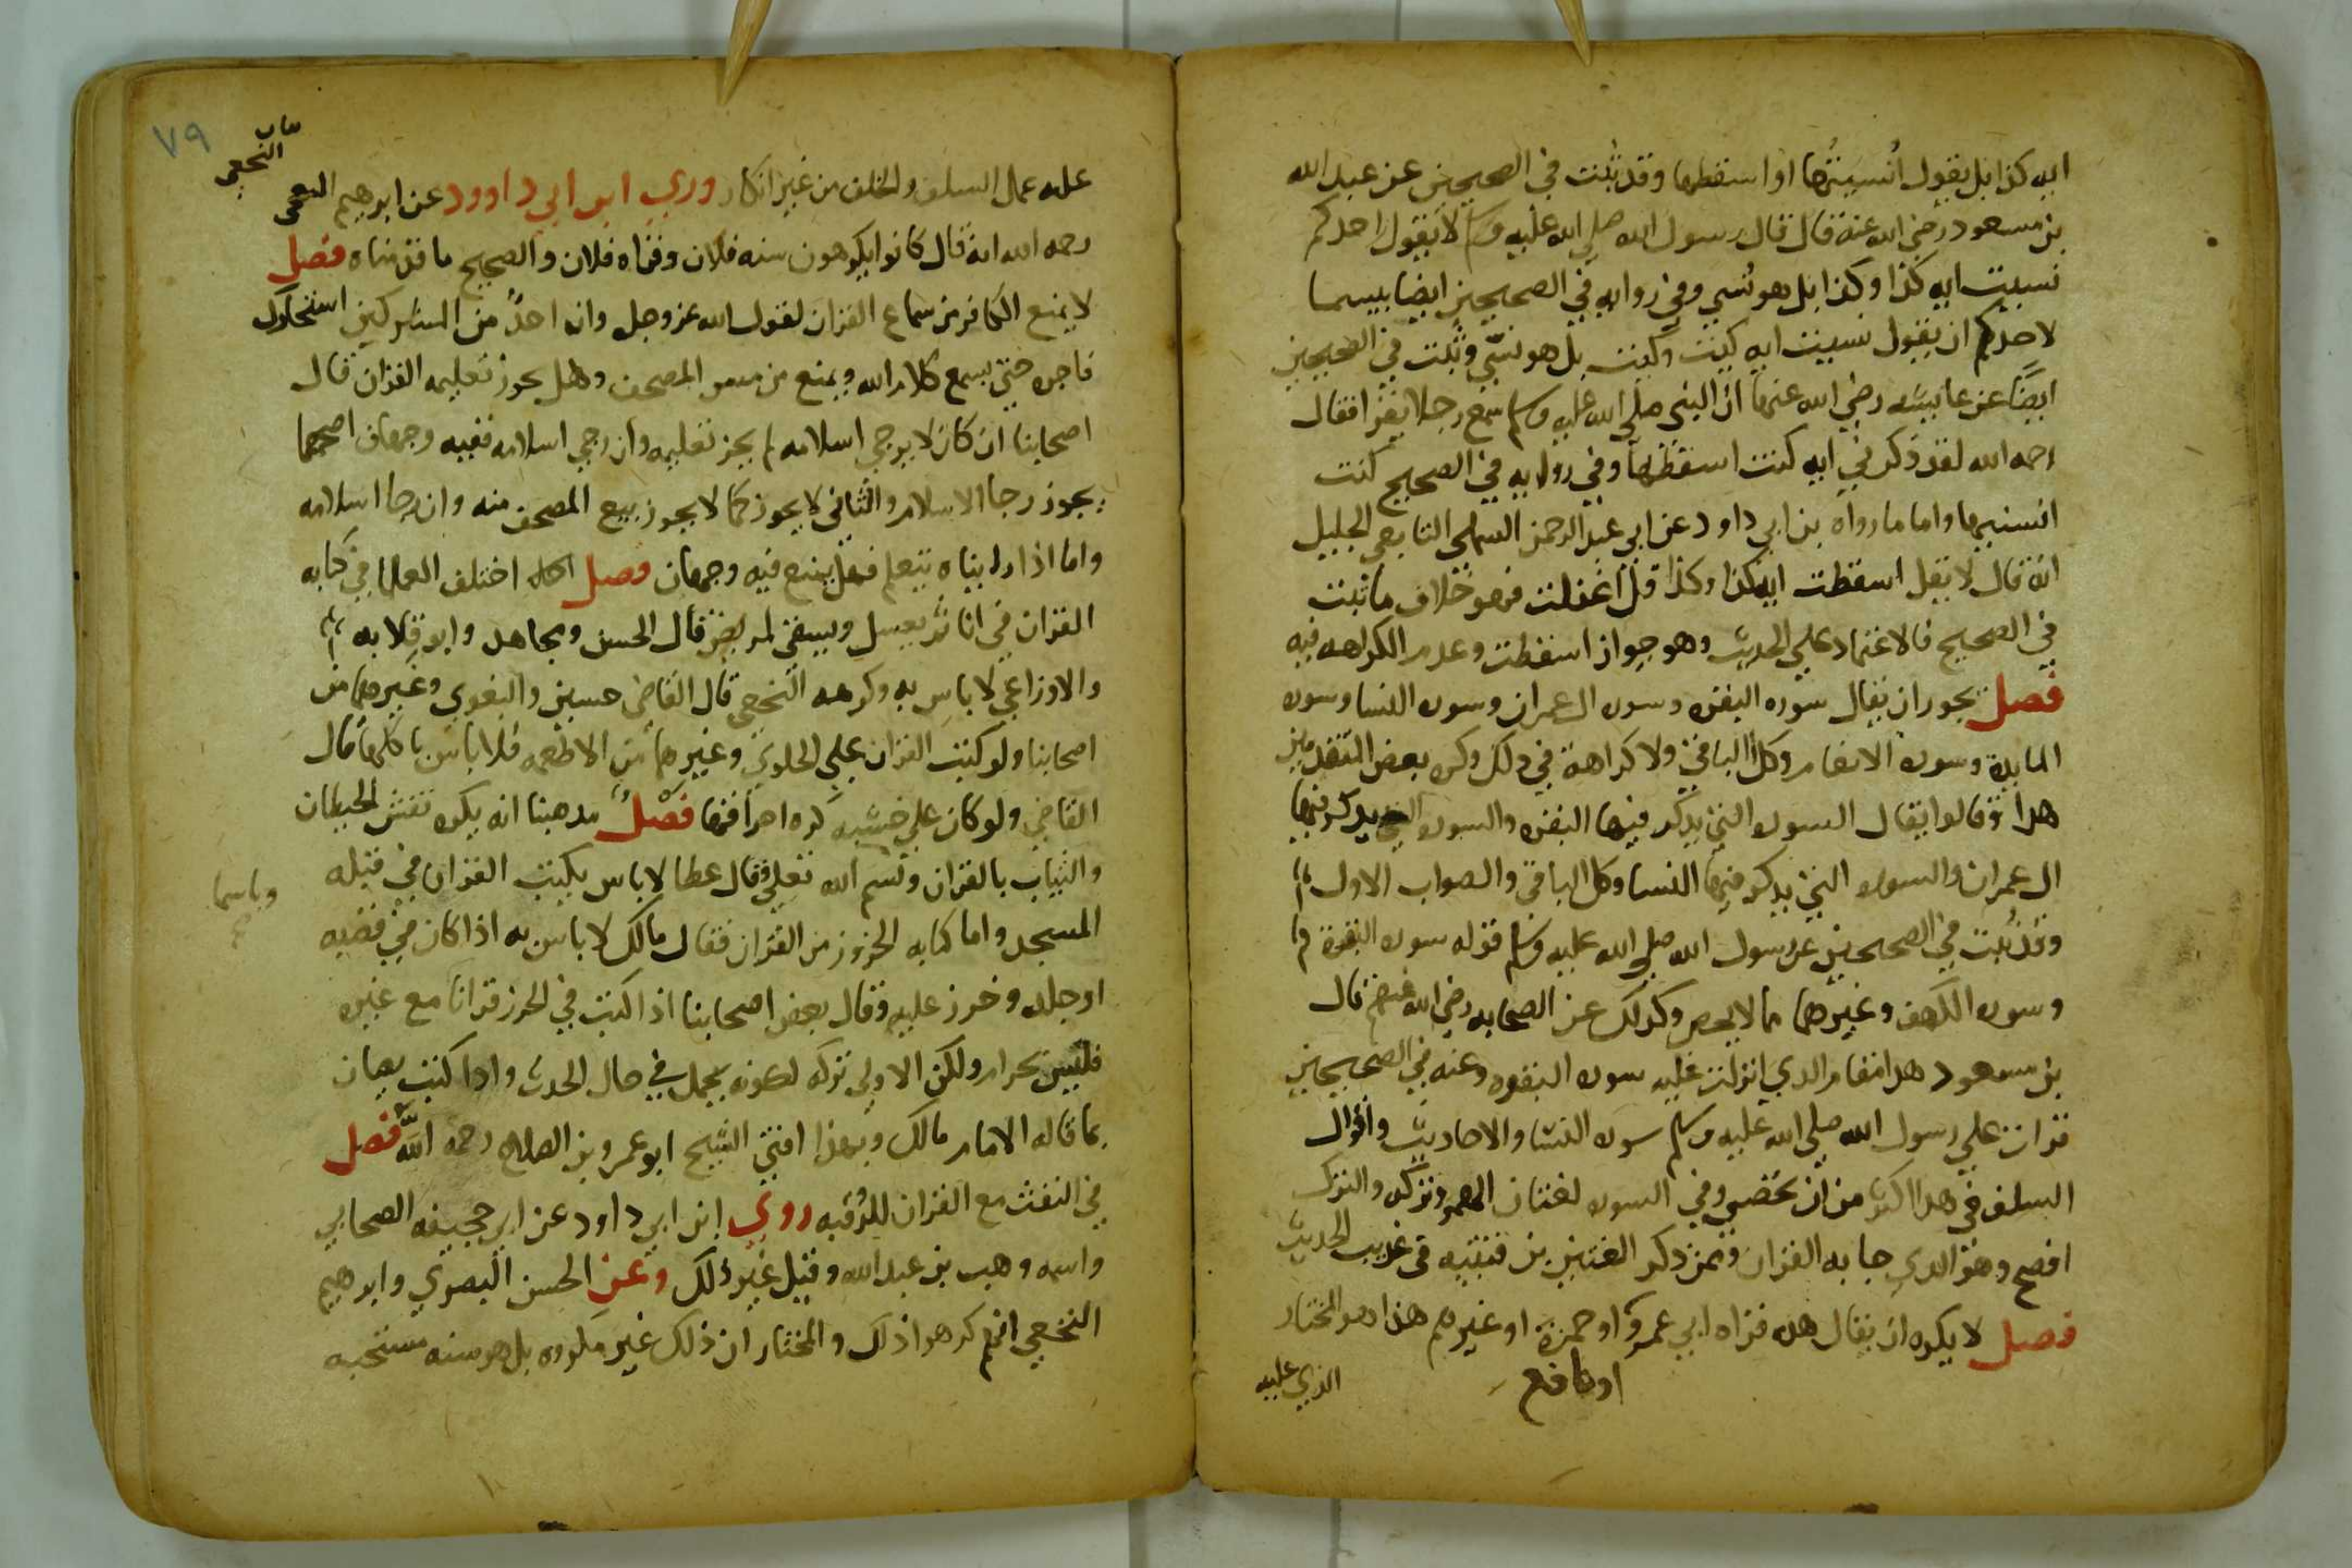 ايه كذا بل يقول أنسيتها او اسقطها وقد ثبت في الصحيحين عن عبد الله
بن مسعود رضي الله عنه قال قال رسول الله صلي الله عليه وسلم لا يقول احدكم
نسيت ايه كذا وكذا بل هو نُسي وفي روايه في الصحيحين ايضا بيسما
لاحدكم ان يقول نسيت ايه كيت وكيت بل هو نسّي وثبت في الصحيحين
ايضًا عن عايشه رضي الله عنها ان النبي صلي الله عليه وسلم سمع رجلا يقرا فقال
رحمه الله لقد ذكرني ايه كنت اسقطها وفي روايه في الصحيح كنت
انسيها واما ما رواه بن ابي داود عن ابي عبد الرحمن السلمي التابعي الجليل
انه قال لا تقل اسقطت ايه كذا وكذا قل اغفلت فهو خلاف ما ثبت
في الصحيح فالاعتماد علي الحديث وهو جواز اسقطت وعدم الكراهه فيه
فصل يجوز ان يقال سوره البقره وسوره ال عمران وسوره النسا وسوره
المايدة وسوره الانعام وكذا الباقي ولا كراهة في ذلك وكره بعض المتقدمين
هذا وقالوا يقال السوره التي يذكر فيها البقره والسوره التي يذكر فيها
ال عمران والسوره التي يذكر فيها النسا وكذا الباقي والصواب الاول
وقد ثبت في الصحيحين عن رسول الله صلي الله عليه وسلم قوله سوره البقرة
وسوره الكهف وغيرهما مما لا يحصي وكذلك عن الصحابه رضي الله عنهم قال
بن مسعود هذا مقام الذي انزلت عليه سوره البقره وعنه في الصحيحين
قرات علي رسول الله صلي الله عليه وسلم سوره النسا والاحاديث واقوال
السلف في هذا اكثر من ان تحصي وفي السوره لغتان الهمز وتركه والترك
افصح وهو الذي جا به القران وممن ذكر اللغتين بن قتيبه في غريب الحديث
فصل لا يكره ان يقال هذه قراه ابي عمرو او حمزة او غيرهم هذا هو المختار
او نافع
الذي عليه
٧٩
النخعي
عليه عمل السلف والخلف من غير انكار وروي ابن ابي داوود عن ابرهيم النخعي
رحمه الله انه قال كانوا يكرهون سنه فلان وقراه فلان والصحيح ما قدمناه فصل
لا يمنع الكافر من سماع القران لقول الله عز وجل وان احدٌ من المشركين استجارك
فاجره حتي يسمع كلام الله ويمنع من مس المصحف وهل يجوز تعليمه القران قال
اصحابنا ان كان لا يرجي اسلامه لم يجز تعليمه وان رجي اسلامه ففيه وجهان اصحهما
يجوز رجا الاسلام والثاني لا يجوز كما لا يجوز بيع المصحف منه وان رجا اسلامه
واما اذا رايناه يتعلم فهل يمنع فيه وجهان فصل اختلف العلما في كتابه
القران في انا ثم يغسل ويسقي لمريض قال الحسن ومجاهد وابو قلابه
والاوزاعي لا باس به وكرهه النخعي قال القاضي حسين والبغوي وغيرهما من
اصحابنا ولو كتب القران علي الحلوي وغيرهما من الاطعمه فلا باس باكلها قال
القاضي ولو كان علي خشبه كره احراقها فصلٌ مذهبنا انه يكره نقش الحيطان
والثياب بالقران وبسم الله تعلي وقال عطا لا باس بكتب القران في قبله
وباسما
المسجد واما كتابه الحزوز من القران فقال مالك لا باس به اذا كان في قصبه
او جلد وخرز عليه وقال بعض اصحابنا اذا كتب في الحرز قرانا مع غيره
فليس بحرام ولكن الاولي تركه لكونه يحمل في حال الحدث واذا كتب يصان
بما قاله الامام مالك وبهذا افتي الشيخ ابو عمرو بن الصلاح رحمه اللّه فصل
في النفث مع القران للرُقيه روي ابن ابي داود عن ابي جحيفه الصحابي
واسمه وهب بن عبد الله وقيل غير ذلك وعن الحسن البصري وابرهيم
النخعي انهم كرهوا ذلك والمختار ان ذلك غير مكروه بل هو سنه مستحبه